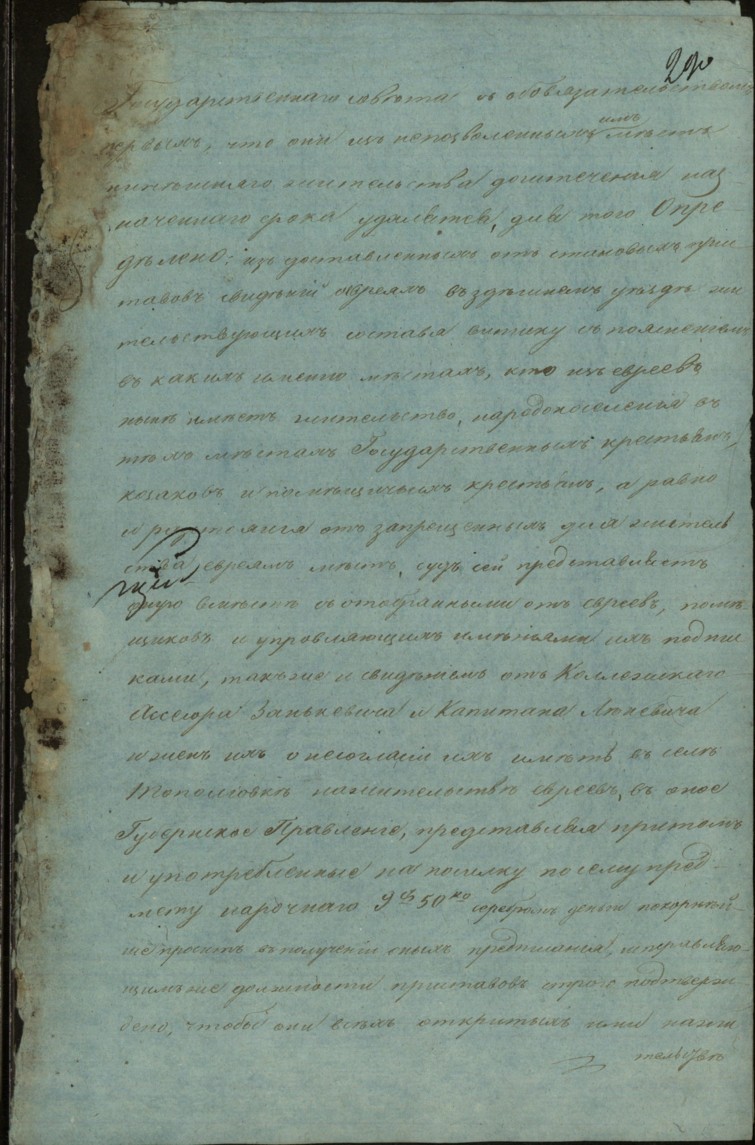 290
Государственнаго совѣта съ обовязательствомъ
первыхъ, что они изъ непозволенныхъ имъ мѣстъ
нинѣшняго жительства до истеченія наз
наченнаго срока удалятся, для того Опре-
дѣлено: изъ доставленныхъ отъ становыхъ при
ставовъ свидѣній евреямъ въ здѣшнемъ уѣздѣ жи
тельствующимъ составя выписку съ поясненіемъ
въ какихъ именно мѣстахъ, кто изъ евреевъ
нынѣ имѣетъ жительство, народонаселенія въ
тѣхъ мѣстахъ Государственныхъ крестьянъ,
козаковъ и помѣщичьихъ крестьянъ, а равно
и разстоянія отъ запрещенныхъ для житель
ства евреямъ мѣстъ, судъ сей представляетъ
оную вмѣстѣ съ отобранными отъ евреевъ, помѣ
щиковъ и управляющихъ имѣніями ихъ подпис
ками, такъже и свидѣніемъ отъ Коллежскаго
Ассесора Занькевича и Капитана
и женъ ихъ о несогласіи ихъ имѣть въ селѣ
Тополовкѣ на жительствѣ евреевъ, въ оное
Губернское Правленіе, представляя притомъ
и употребленные на посилку по сему пред-
мету нарочнаго 9 руб 50 ко серебромъ деньги покорнѣй-
ше проситъ въ полученіи оныхъ предписанія, исправляю-
щимъ же должности приставовъ строго подтверж
дено, чтобы они всѣхъ откритыхъ ими на жи
тельствѣ